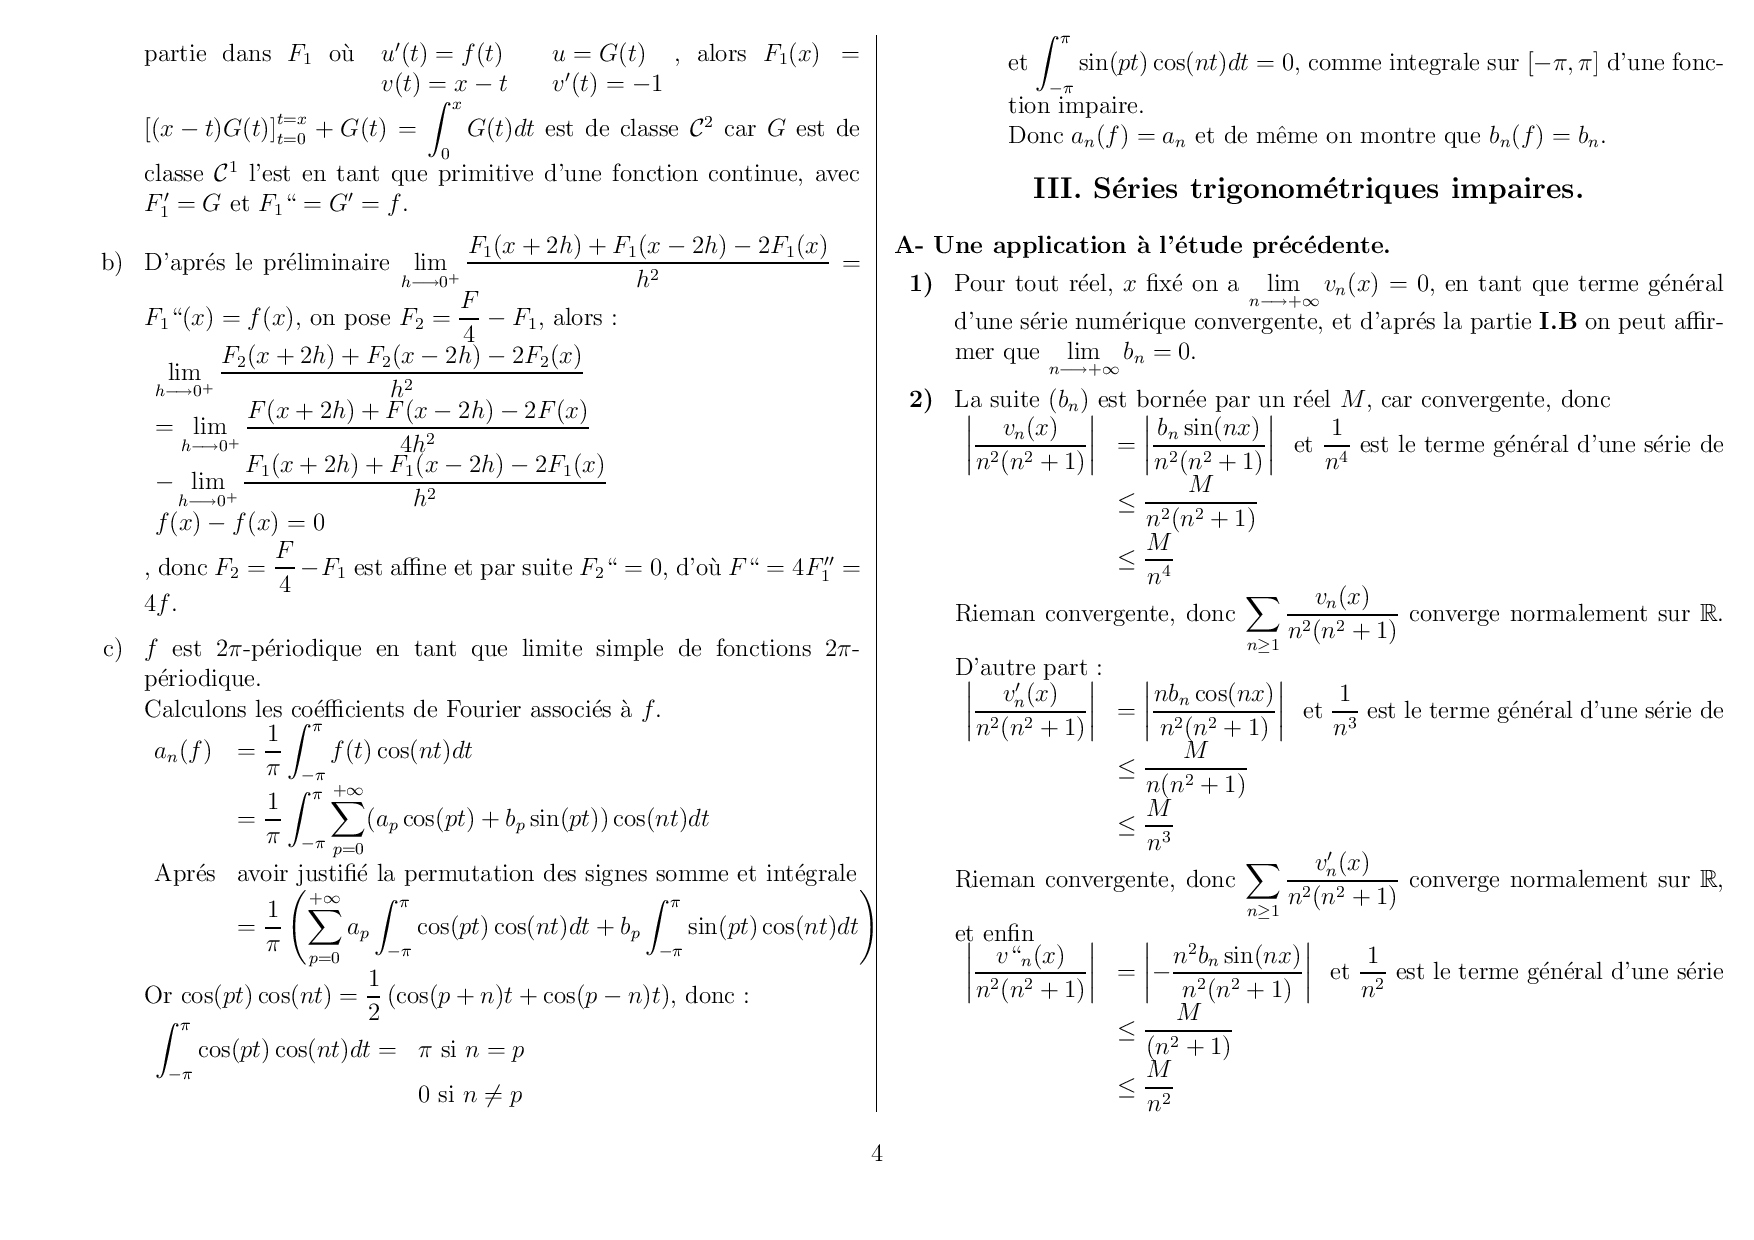 partie dans F₁ où u′(t) = f(t) u = G(t) , alors F₁(x) =
v(t) = x − t v′(t) = −1
[(x − t)G(t)]_{t=0}^{t=x} + G(t) = ∫_0^x G(t)dt est de classe C² car G est de
classe C¹ l'est en tant que primitive d'une fonction continue, avec
F₁′ = G et F₁“ = G′ = f.
b) D'aprés le préliminaire lim_{h⟶0⁺} (F₁(x + 2h) + F₁(x − 2h) − 2F₁(x))/h² =
F₁“(x) = f(x), on pose F₂ = F/4 − F₁, alors :
lim_{h⟶0⁺} (F₂(x + 2h) + F₂(x − 2h) − 2F₂(x))/h²
= lim_{h⟶0⁺} (F(x + 2h) + F(x − 2h) − 2F(x))/4h²
− lim_{h⟶0⁺} (F₁(x + 2h) + F₁(x − 2h) − 2F₁(x))/h²
f(x) − f(x) = 0
, donc F₂ = F/4 − F₁ est affine et par suite F₂“ = 0, d'où F“ = 4F₁″ =
4f.
c) f est 2π-périodique en tant que limite simple de fonctions 2π-
périodique.
Calculons les coéfficients de Fourier associés à f.
aₙ(f) = 1/π ∫_{−π}^{π} f(t) cos(nt)dt
= 1/π ∫_{−π}^{π} ∑_{p=0}^{+∞} (aₚ cos(pt) + bₚ sin(pt)) cos(nt)dt
Aprés avoir justifié la permutation des signes somme et intégrale
= 1/π (∑_{p=0}^{+∞} aₚ ∫_{−π}^{π} cos(pt) cos(nt)dt + bₚ ∫_{−π}^{π} sin(pt) cos(nt)dt)
Or cos(pt) cos(nt) = 1/2 (cos(p + n)t + cos(p − n)t), donc :
∫_{−π}^{π} cos(pt) cos(nt)dt = π si n = p
0 si n ≠ p
et ∫_{−π}^{π} sin(pt) cos(nt)dt = 0, comme integrale sur [−π, π] d'une fonc-
tion impaire.
Donc aₙ(f) = aₙ et de même on montre que bₙ(f) = bₙ.
III. Séries trigonométriques impaires.
A- Une application à l'étude précédente.
1) Pour tout réel, x fixé on a lim_{n⟶+∞} vₙ(x) = 0, en tant que terme général
d'une série numérique convergente, et d'aprés la partie I.B on peut affir-
mer que lim_{n⟶+∞} bₙ = 0.
2) La suite (bₙ) est bornée par un réel M, car convergente, donc
|vₙ(x)/(n²(n² + 1))| = |bₙ sin(nx)/(n²(n² + 1))| et 1/n⁴ est le terme général d'une série de
≤ M/(n²(n² + 1))
≤ M/n⁴
Rieman convergente, donc ∑_{n≥1} vₙ(x)/(n²(n² + 1)) converge normalement sur ℝ.
D'autre part :
|vₙ′(x)/(n²(n² + 1))| = |nbₙ cos(nx)/(n²(n² + 1))| et 1/n³ est le terme général d'une série de
≤ M/(n(n² + 1))
≤ M/n³
Rieman convergente, donc ∑_{n≥1} vₙ′(x)/(n²(n² + 1)) converge normalement sur ℝ,
et enfin
|v“ₙ(x)/(n²(n² + 1))| = |−n²bₙ sin(nx)/(n²(n² + 1))| et 1/n² est le terme général d'une série
≤ M/(n² + 1)
≤ M/n²
4